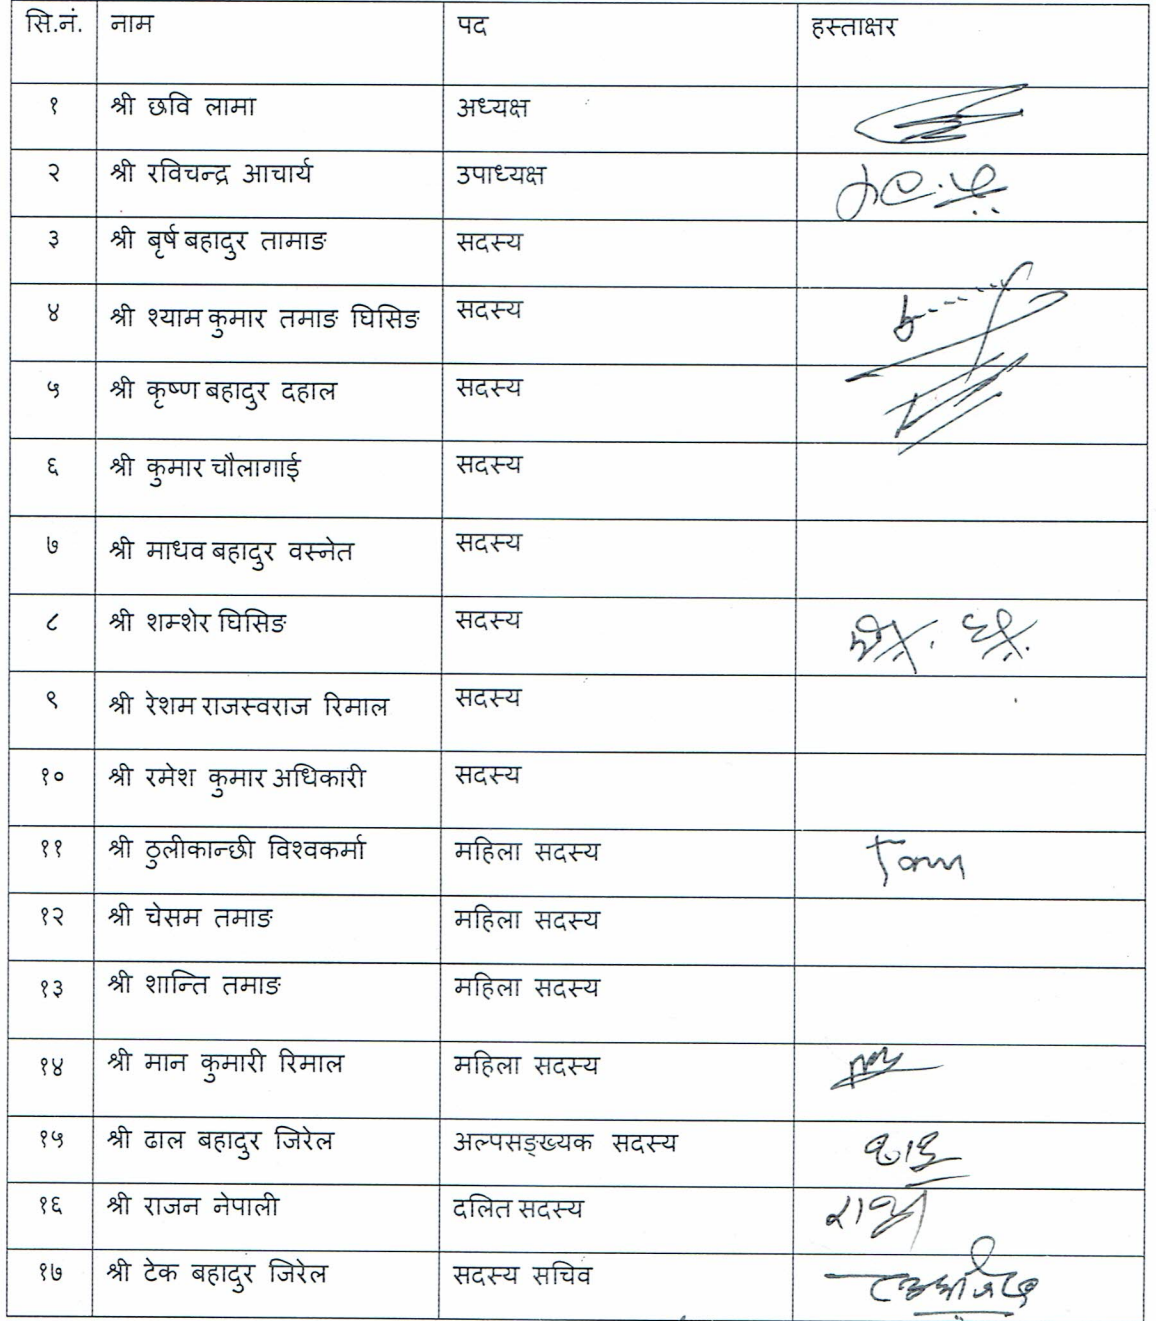 सि.नं. नाम पद हस्ताक्षर
१ श्री छवि लामा अध्यक्ष
२ श्री रविचन्द्र आचार्य उपाध्यक्ष
३ श्री बृर्ष बहादुर तामाङ सदस्य
४ श्री श्याम कुमार तमाङ घिसिङ सदस्य
५ श्री कृष्ण बहादुर दहाल सदस्य
६ श्री कुमार चौलागाई सदस्य
७ श्री माधव बहादुर वस्नेत सदस्य
८ श्री शम्शेर घिसिङ सदस्य
९ श्री रेशम राजस्वराज रिमाल सदस्य
१० श्री रमेश कुमार अधिकारी सदस्य
११ श्री ठुलीकान्छी विश्वकर्मा महिला सदस्य
१२ श्री चेसम तमाङ महिला सदस्य
१३ श्री शान्ति तमाङ महिला सदस्य
१४ श्री मान कुमारी रिमाल महिला सदस्य
१५ श्री ढाल बहादुर जिरेल अल्पसङ्ख्यक सदस्य
१६ श्री राजन नेपाली दलित सदस्य
१७ श्री टेक बहादुर जिरेल सदस्य सचिव